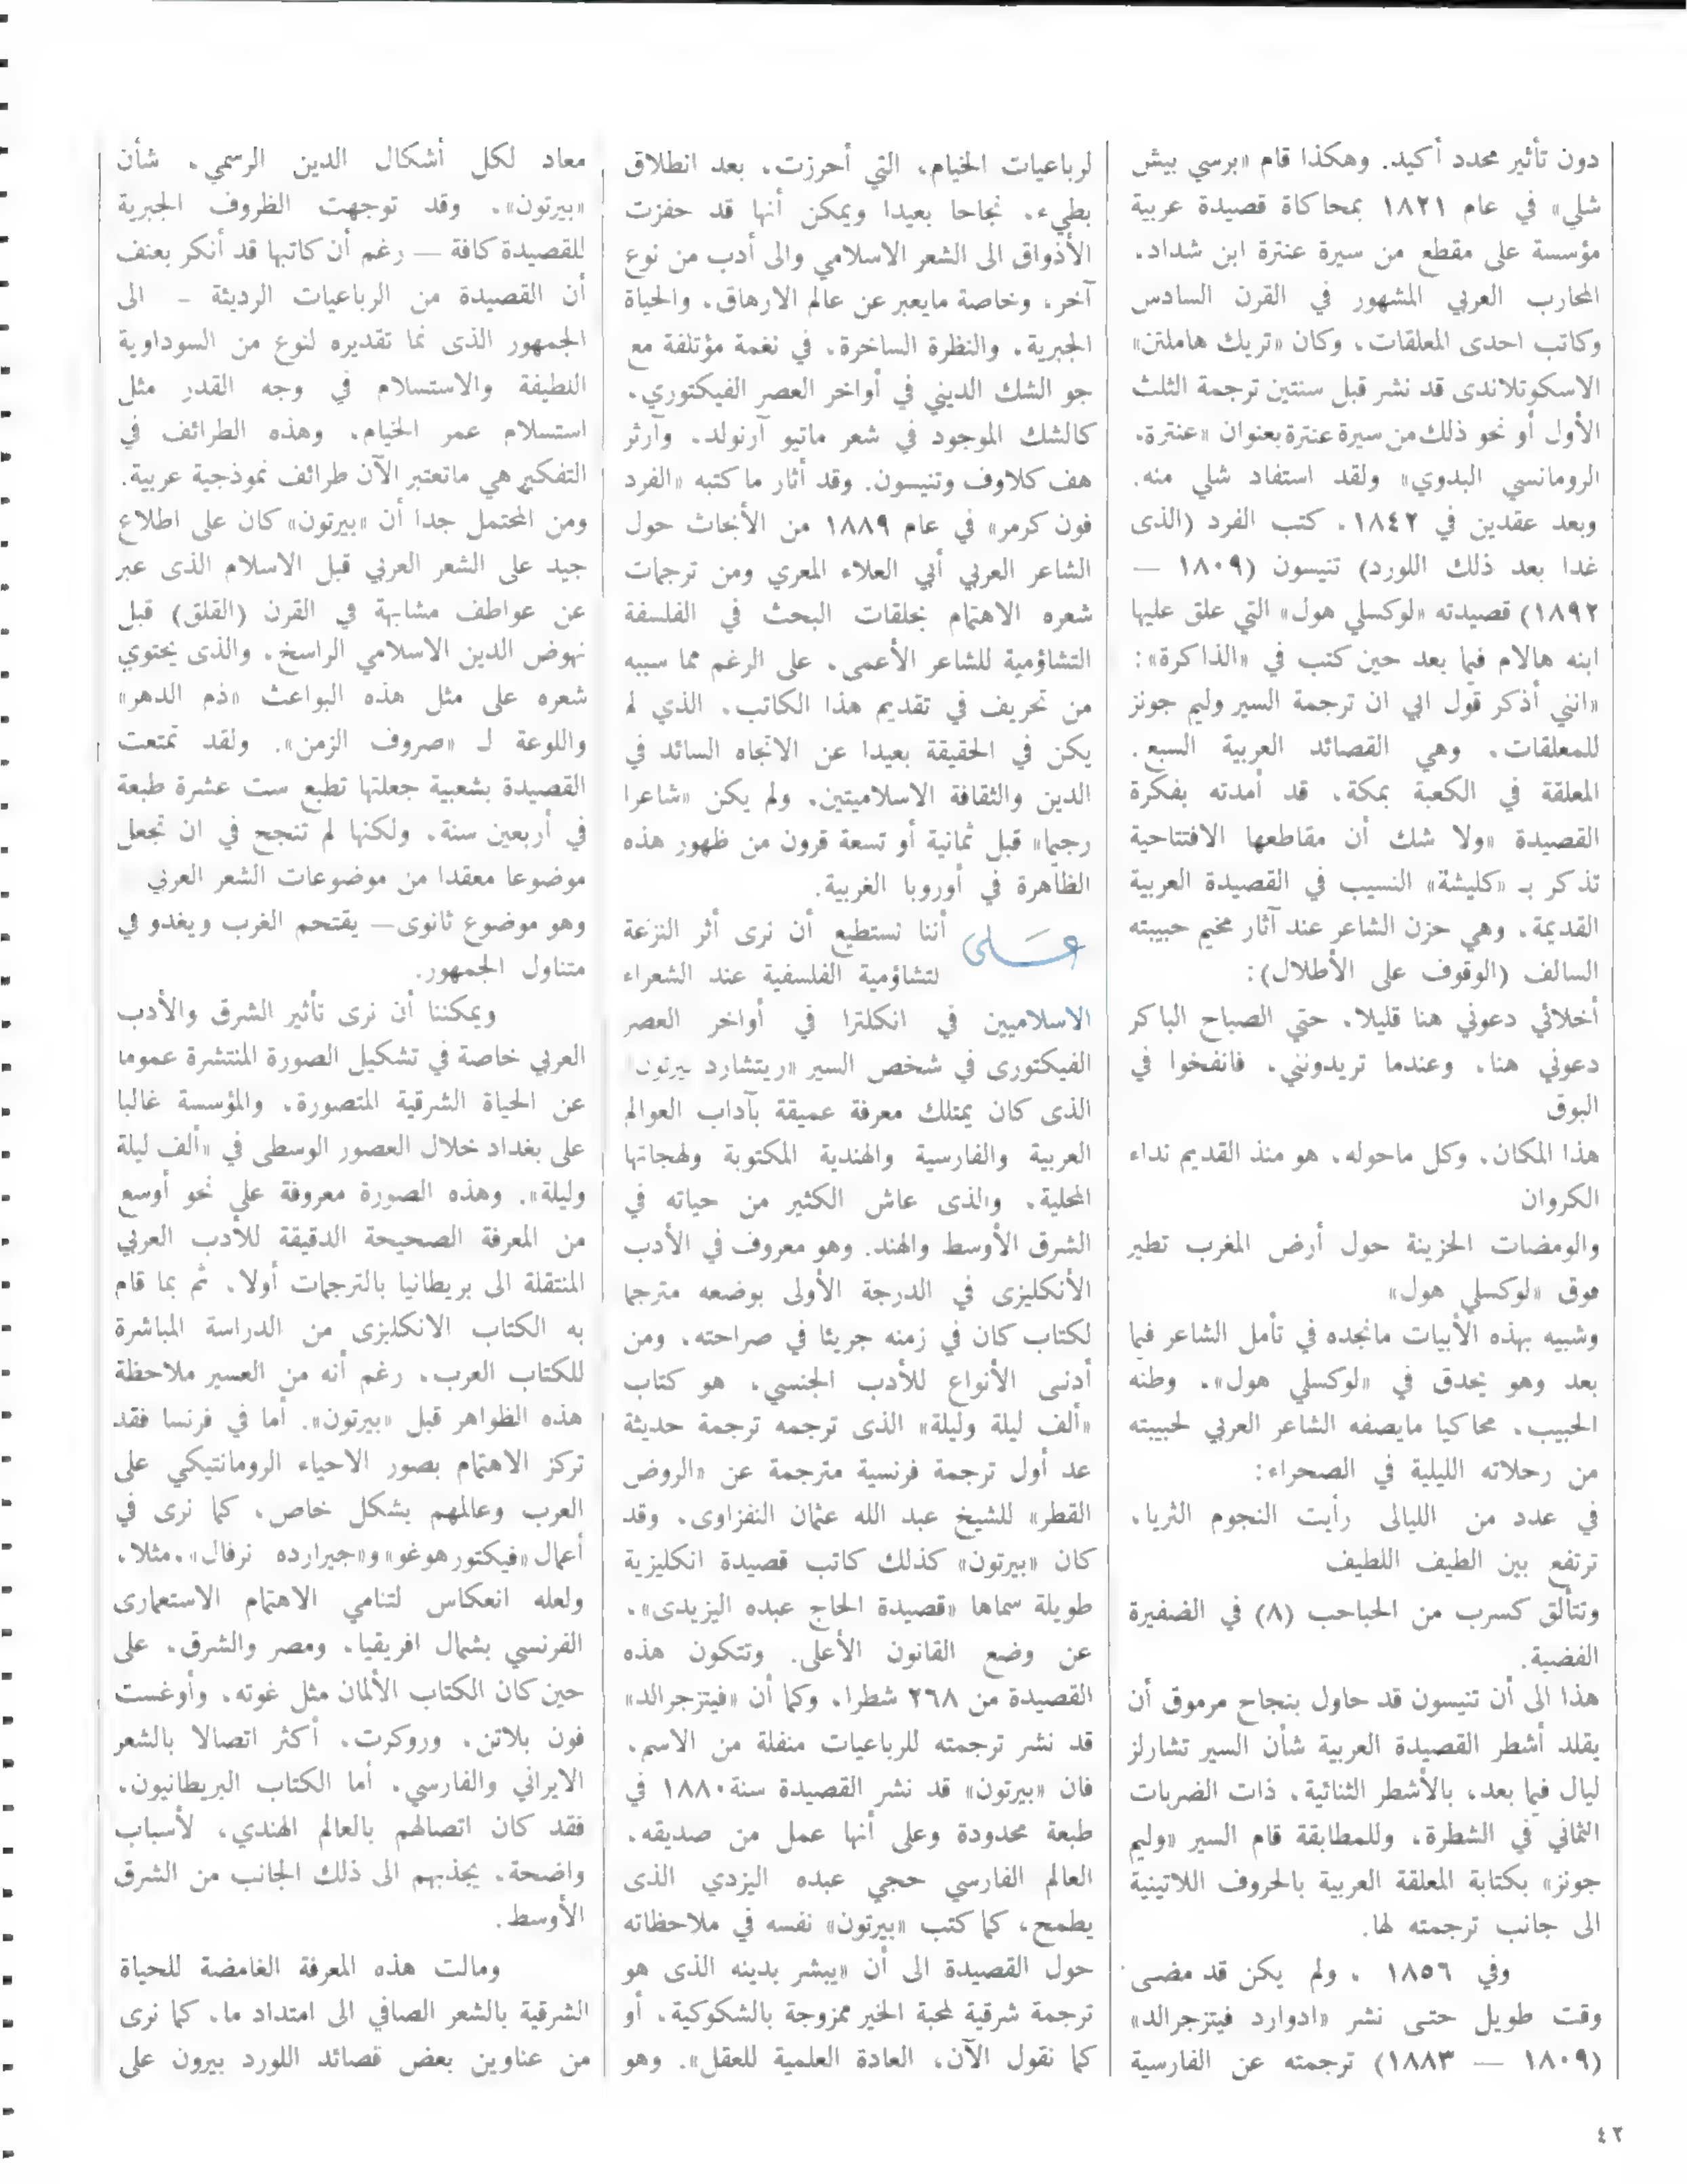 دون تأثير محدد أكيد. وهكذا قام «برسي بيش
شلي» في عام ١٨٢١ بمحاكاة قصيدة عربية
مؤسسة على مقطع من سيرة عنترة ابن شداد،
المحارب العربي المشهور في القرن السادس
وكاتب احدى المعلقات، وكان «تريك هاملتن»
الاسكوتلاندى قد نشر قبل سنتين ترجمة الثلث
الأول أو نحو ذلك من سيرة عنترة بعنوان «عنترة،
الرومانسي البدوي» ولقد استفاد شلي منه.
وبعد عقدين في ١٨٤٢، كتب الفرد (الذى
غدا بعد ذلك اللورد) تنيسون (١٨٠٩ —
١٨٩٢) قصيدته «لوكسلي هول» التي علق عليها
ابنه هالام فيما بعد حين كتب في «الذاكرة»:
«انني أذكر قول ابي ان ترجمة السير وليم جونز
للمعلقات، وهي القصائد العربية السبع.
المعلقة في الكعبة بمكة، قد أمدته بفكرة
القصيدة «ولا شك أن مقاطعها الافتتاحية
تذكر بـ «كليشة» النسيب في القصيدة العربية
القديمة، وهي حزن الشاعر عند آثار مخيم حبيبته
السالف (الوقوف على الأطلال):
أخلائي دعوني هنا قليلا، حتي الصباح الباكر
دعوني هنا، وعندما تريدونني، فانفخوا في
البوق
هذا المكان، وكل ماحوله، هو منذ القديم نداء
الكروان
والومضات الحزينة حول أرض المغرب تطير
فوق «لوكسلي هول»
وشبيه بهذه الأبيات مانجده في تأمل الشاعر فيما
بعد وهو يحدق في «لوكسلي هول»، وطنه
الحبيب، محاكيا مايصفه الشاعر العربي لحبيبته
من رحلاته الليلية في الصحراء:
في عدد من الليالى رأيت النجوم الثريا،
ترتفع بين الطيف اللطيف
وتتألق كسرب من الحباحب (٨) في الضفيرة
الفضية.
هذا الى أن تنيسون قد حاول بنجاح مرموق أن
يقلد أشطر القصيدة العربية شأن السير تشارلز
ليال فيما بعد، بالأشطر الثنائية، ذات الضربات
الثماني في الشطرة، وللمطابقة قام السير «وليم
جونز» بكتابة المعلقة العربية بالحروف اللاتينية
الى جانب ترجمته لها.
وفي ١٨٥٦ ، ولم يكن قد مضى
وقت طويل حتى نشر «ادوارد فيتزجرالد»
(١٨٠٩ — ١٨٨٣) ترجمته عن الفارسية
لرباعيات الخيام، التي أحرزت، بعد انطلاق
بطيء، نجاحا بعيدا ويمكن أنها قد حفزت
الأذواق الى الشعر الاسلامي والى أدب من نوع
آخر، وخاصة مايعبر عن عالم الارهاق، والحياة
الجبرية، والنظرة الساخرة، في نغمة مؤتلفة مع
جو الشك الديني في أواخر العصر الفيكتوري،
كالشك الموجود في شعر ماتيو آرنولد، وآرثر
هف كلاوف وتنيسون. وقد أثار ما كتبه «الفرد
فون كرمر» في عام ١٨٨٩ من الأبحاث حول
الشاعر العربي أبي العلاء المعري ومن ترجمات
شعره الاهتمام بحلقات البحث في الفلسفة
التشاؤمية للشاعر الأعمى، على الرغم مما سببه
من تحريف في تقديم هذا الكاتب، الذي لم
يكن في الحقيقة بعيدا عن الاتجاه السائد في
الدين والثقافة الاسلاميتين، ولم يكن «شاعرا
رجيما» قبل ثمانية أو تسعة قرون من ظهور هذه
الظاهرة في أوروبا الغربية.
على أننا نستطيع أن نرى أثر النزعة
لتشاؤمية الفلسفية عند الشعراء
الاسلاميين في انكلترا في أواخر العصر
الفيكتورى في شخص السير «ريتشارد بيرتون»
الذى كان يمتلك معرفة عميقة بآداب العوالم
العربية والفارسية والهندية المكتوبة ولهجاتها
المحلية، والذى عاش الكثير من حياته في
الشرق الأوسط والهند. وهو معروف في الأدب
الأنكليزى في الدرجة الأولى بوضعه مترجما
لكتاب كان في زمنه جريئا في صراحته، ومن
أدنى الأنواع للأدب الجنسي، هو كتاب
«ألف ليلة وليلة» الذى ترجمه ترجمة حديثة
عد أول ترجمة فرنسية مترجمة عن «الروض
القطر» للشيخ عبد الله عثمان النفزاوى، وقد
كان «بيرتون» كذلك كاتب قصيدة انكليزية
طويلة سماها «قصيدة الحاج عبده اليزيدى»،
عن وضع القانون الأعلى. وتتكون هذه
القصيدة من ٢٦٨ شطرا، وكما أن «فيتزجرالد»
قد نشر ترجمته للرباعيات منفلة من الاسم،
فان «بيرتون» قد نشر القصيدة سنة ١٨٨٠ في
طبعة محدودة وعلى أنها عمل من صديقه،
العالم الفارسي حجي عبده اليزدي الذى
يطمح، كما كتب «بيرتون» نفسه في ملاحظاته
حول القصيدة الى أن «يبشر بدينه الذى هو
ترجمة شرقية لمحبة الخير ممزوجة بالشكوكية، أو
كما نقول الآن، العادة العلمية للعقل». وهو
معاد لكل أشكال الدين الرسمي، شأن
«بيرتون»، وقد توجهت الظروف الجبرية
للقصيدة كافة — رغم أن كاتبها قد أنكر بعنف
أن القصيدة من الرباعيات الرديئة - الى
الجمهور الذى نما تقديره لنوع من السوداوية
اللطيفة والاستسلام في وجه القدر مثل
استسلام عمر الخيام، وهذه الطرائف في
التفكير هي ماتعتبر الآن طرائف نموذجية عربية.
ومن المحتمل جدا أن «بيرتون» كان على اطلاع
جيد على الشعر العربي قبل الاسلام الذى عبر
عن عواطف مشابهة في القرن (القلق) قبل
نهوض الدين الاسلامي الراسخ، والذى يحتوي
شعره على مثل هذه البواعث «ذم الدهر»
واللوعة لـ «صروف الزمن». ولقد تمتعت
القصيدة بشعبية جعلتها تطبع ست عشرة طبعة
في أربعين سنة، ولكنها لم تنجح في ان تجعل
موضوعا معقدا من موضوعات الشعر العربي
وهو موضوع ثانوى— يقتحم الغرب ويغدو في
متناول الجمهور.
ويمكننا أن نرى تأثير الشرق والأدب
العربي خاصة في تشكيل الصورة المنتشرة عموما
عن الحياة الشرقية المتصورة، والمؤسسة غالبا
على بغداد خلال العصور الوسطى في «ألف ليلة
وليلة». وهذه الصورة معروفة على نحو أوسع
من المعرفة الصحيحة الدقيقة للأدب العربي
المنتقلة الى بريطانيا بالترجمات أولا، ثم بما قام
به الكتاب الانكليزى من الدراسة المباشرة
للكتاب العرب، رغم أنه من العسير ملاحظة
هذه الظواهر قبل «بيرتون». أما في فرنسا فقد
تركز الاهتمام بصور الاحياء الرومانتيكي على
العرب وعالمهم بشكل خاص، كما نرى في
أعمال «فيكتور هوغو» و«جيرارده نرفال»،مثلا،
ولعله انعكاس لتنامي الاهتمام الاستعمارى
الفرنسي بشمال افريقيا، ومصر والشرق، على
حين كان الكتاب الألمان مثل غوته، وأوغست
فون بلاتن، وروكرت، أكثر اتصالا بالشعر
الايراني والفارسي، أما الكتاب البريطانيون،
فقد كان اتصالهم بالعالم الهندي، لأسباب
واضحة، يجذبهم الى ذلك الجانب من الشرق
الأوسط.
ومالت هذه المعرفة الغامضة للحياة
الشرقية بالشعر الصافي الى امتداد ما، كما نرى
من عناوين بعض قصائد اللورد بيرون على
٤٢